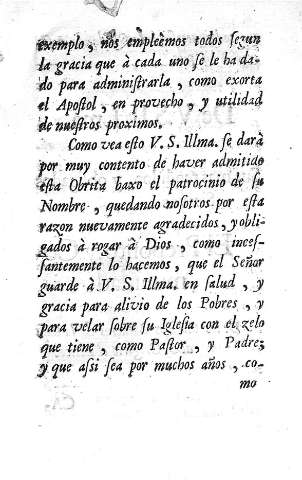 exemplo, nos empleèmos todos segun
la gracia que à cada uno se le ha da-
do para administrarla, como exorta
el Apostol, en provecho, y utilidad
de nuestros proximos.
Como vea esto V. S. Illma. se darà
por muy contento de haver admitido
esta Obrita baxo el patrocinio de su
Nombre, quedando nosotros por esta
razon nuevamente agradecidos, y obli-
gados à rogar à Dios, como inces-
santemente lo hacemos, que el Señor
guarde à V. S. Illma. en salud, y
gracia para alivio de los Pobres, y
para velar sobre su Iglesia con el zelo
que tiene, como Pastor, y Padre;
y que assi sea por muchos años, co-
mo